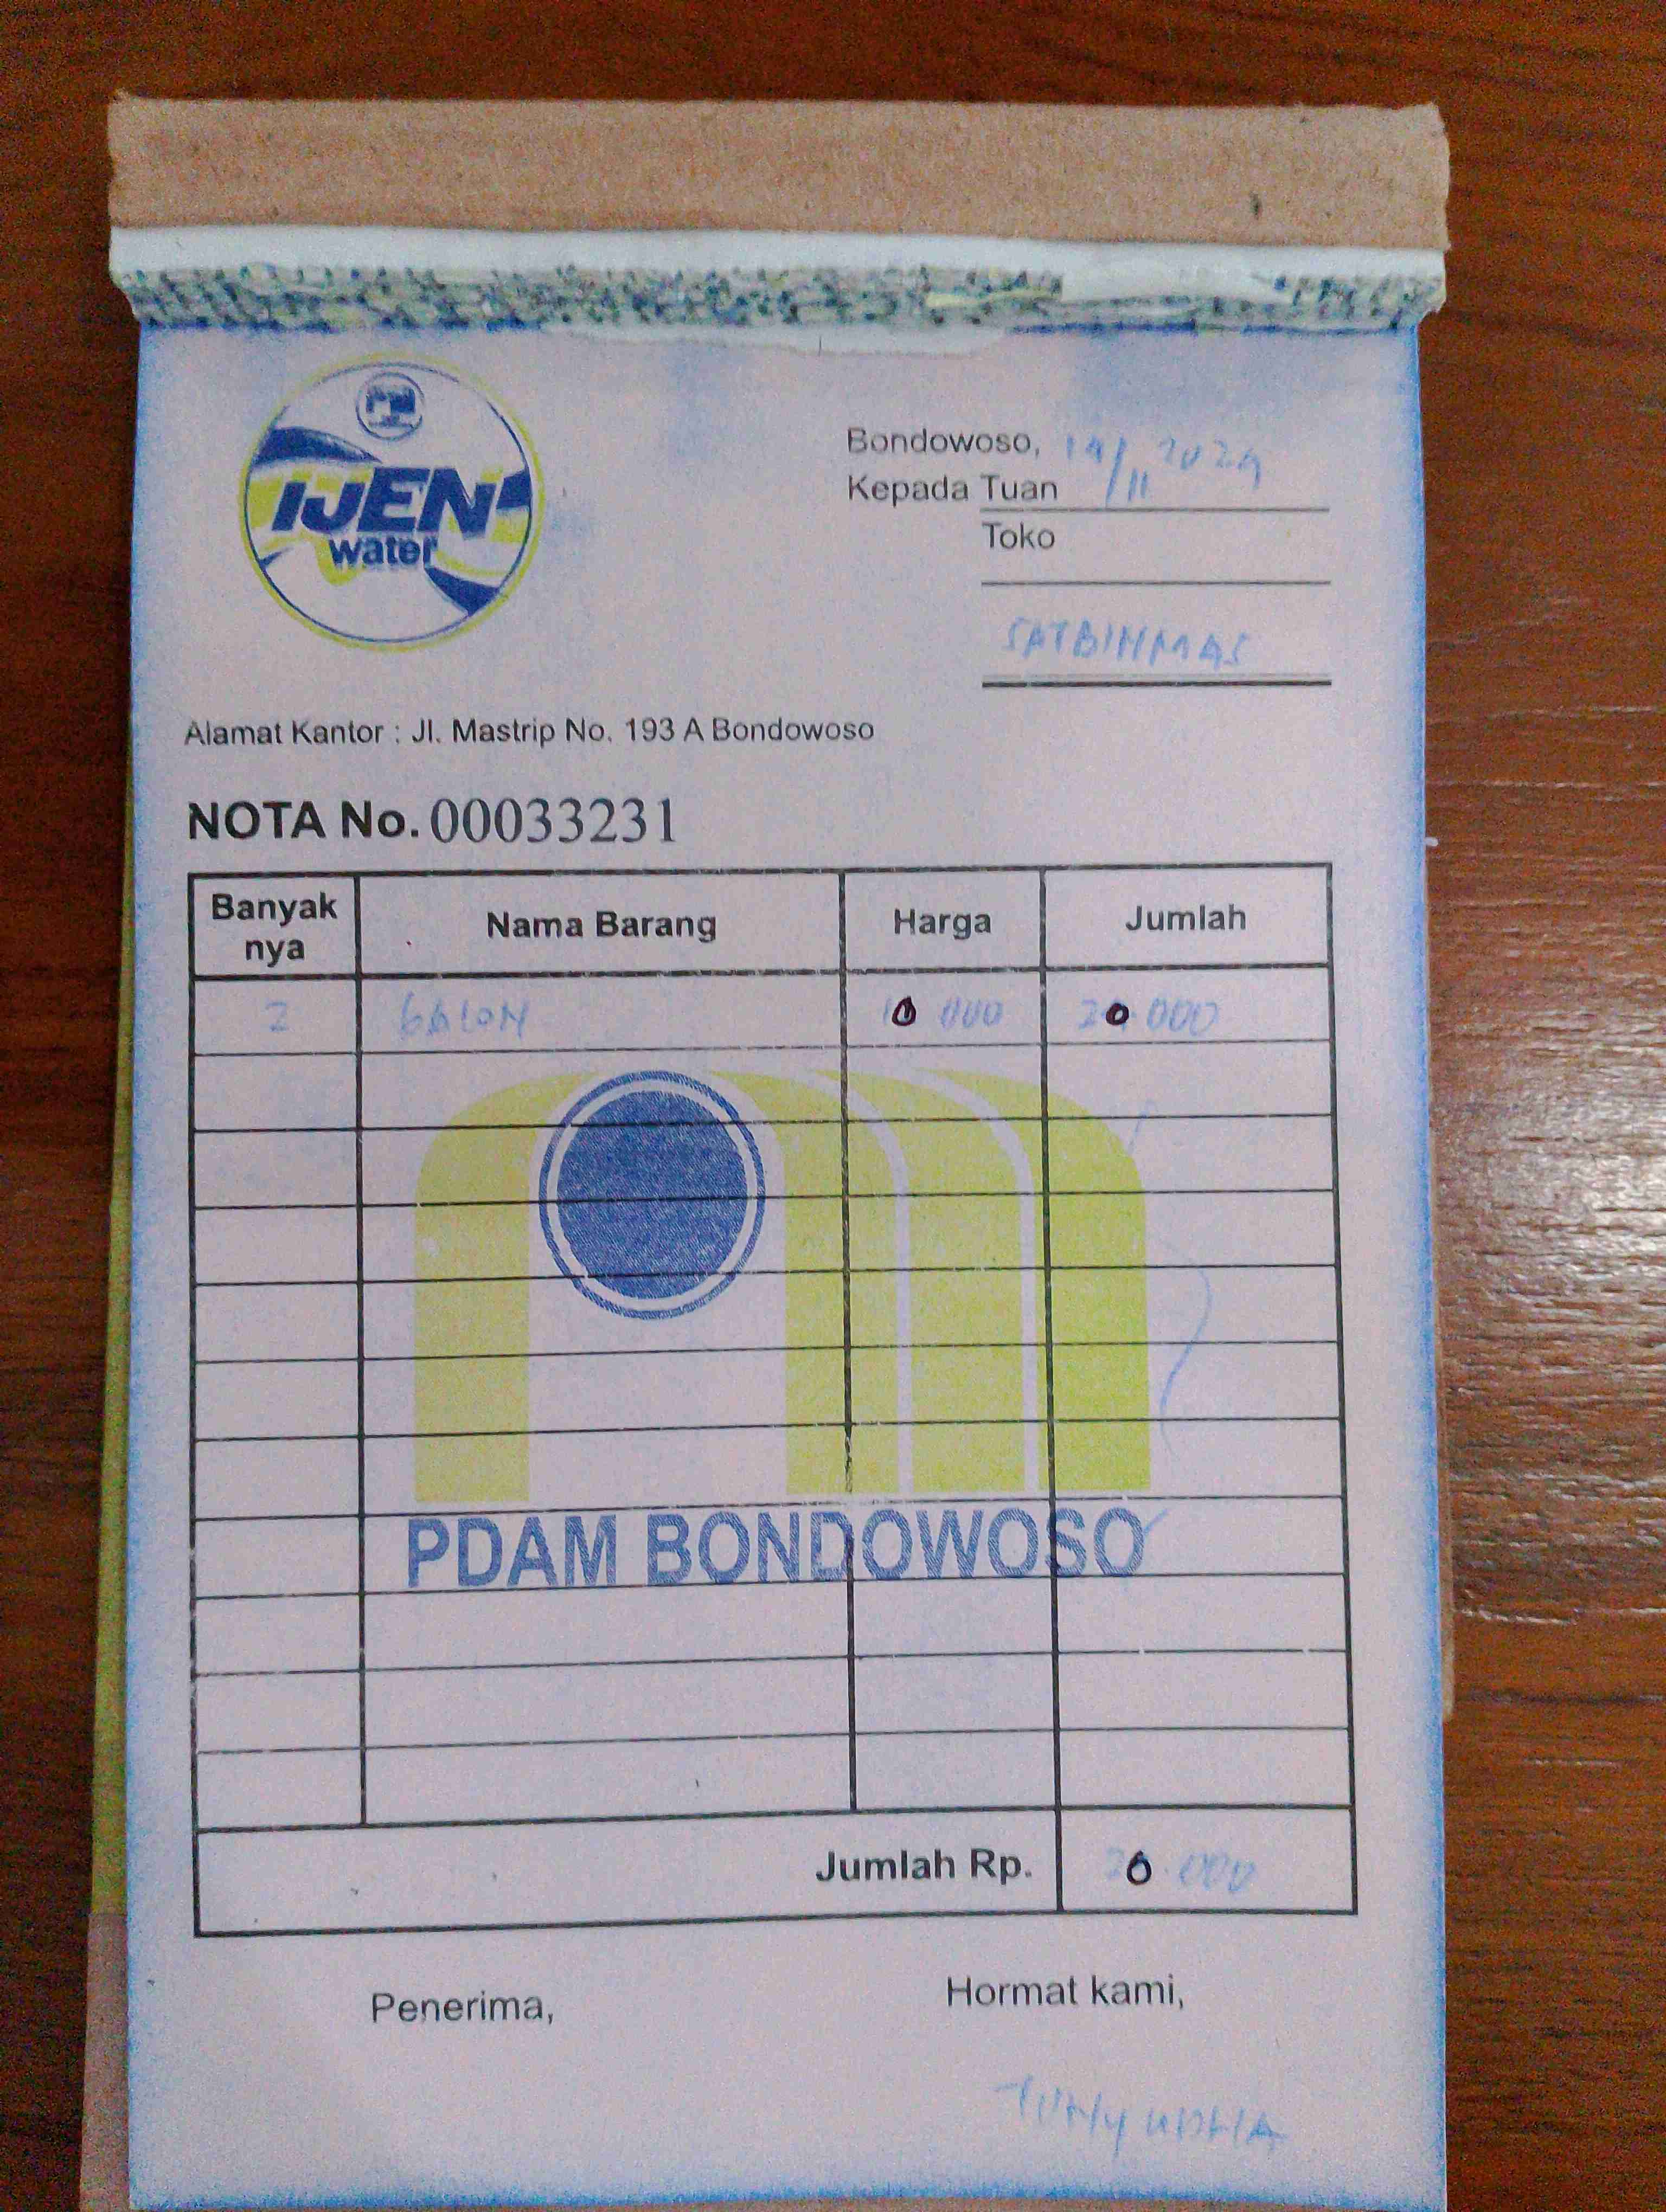 IJEN
water
Bondowoso, 14/11 2024
Kepada Tuan
Toko
SATBINMAS
Alamat Kantor : Jl. Mastrip No. 193 A Bondowoso
NOTA No. 00033231
Banyak nya Nama Barang Harga Jumlah
2 GALON 10 000 20.000
PDAM BONDOWOSO
Jumlah Rp. 20.000
Penerima, Hormat kami,